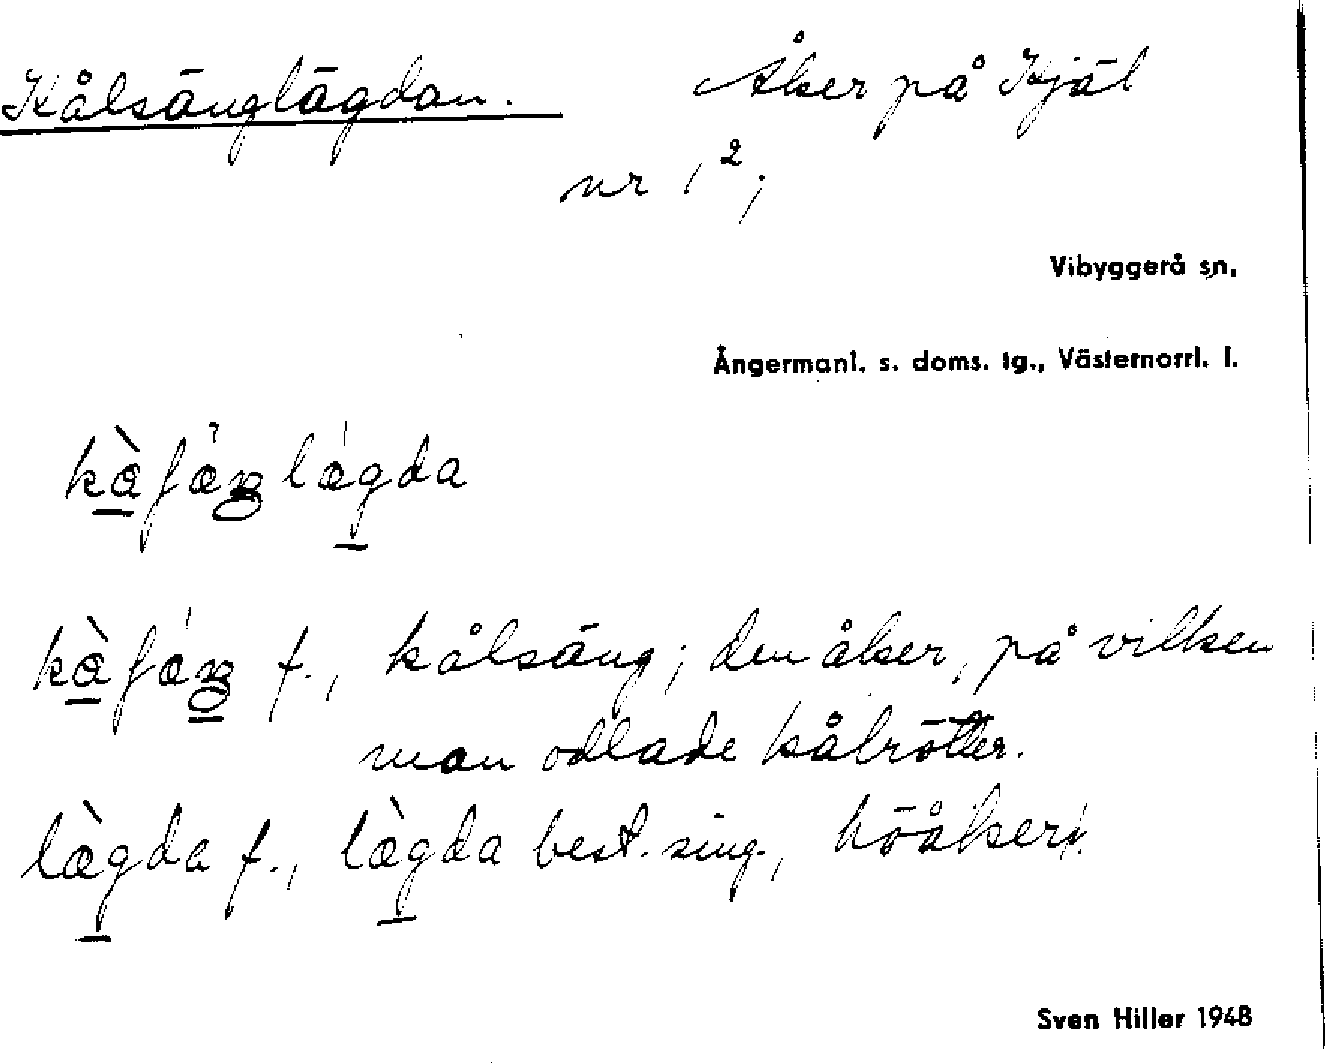 Kålsänglägdan. Åker på Kjäl
nr 1²;
Vibyggerå sn.
Ångermanl. s. doms. tg., Västernorrl. l.
f., kålsäng; den åker, på vilken
man odlade kålrötter.
lægda f., lægda best. sing., höåker.
Sven Hiller 1948